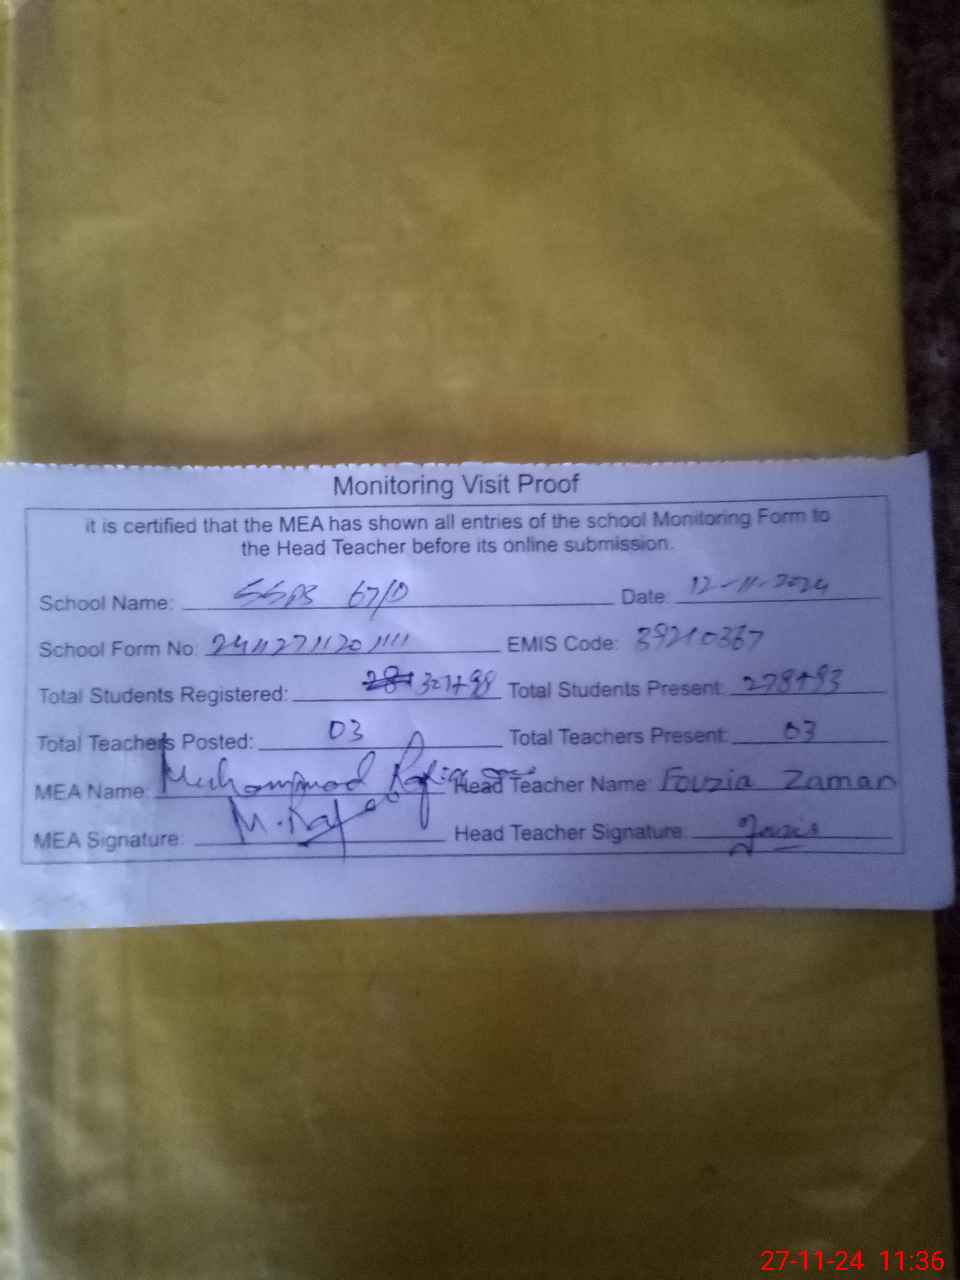 Monitoring Visit Proof
it is certified that the MEA has shown all entries of the school Monitoring Form to
the Head Teacher before its online submission.
School Name: 67/D Date: 12-11-2024
School Form No: EMIS Code: 39210367
Total Students Registered: 321+98 Total Students Present: 278+93
Total Teachers Posted: 03 Total Teachers Present: 03
MEA Name: Muhammad Rafiq Head Teacher Name: Fouzia Zaman
MEA Signature: M. Raf Head Teacher Signature: Fouzia
27-11-24 11:36